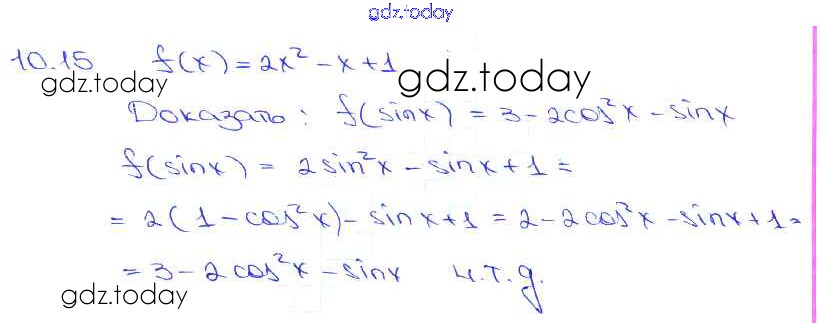 gdz.today
10.15 f(x) = 2x² - x + 1
gdz.today gdz.today
Доказать: f(sinx) = 3 - 2cos²x - sinx
f(sinx) = 2sin²x - sinx + 1 =
= 2(1 - cos²x) - sinx + 1 = 2 - 2cos²x - sinx + 1 =
= 3 - 2cos²x - sinx ч.т.д.
gdz.today